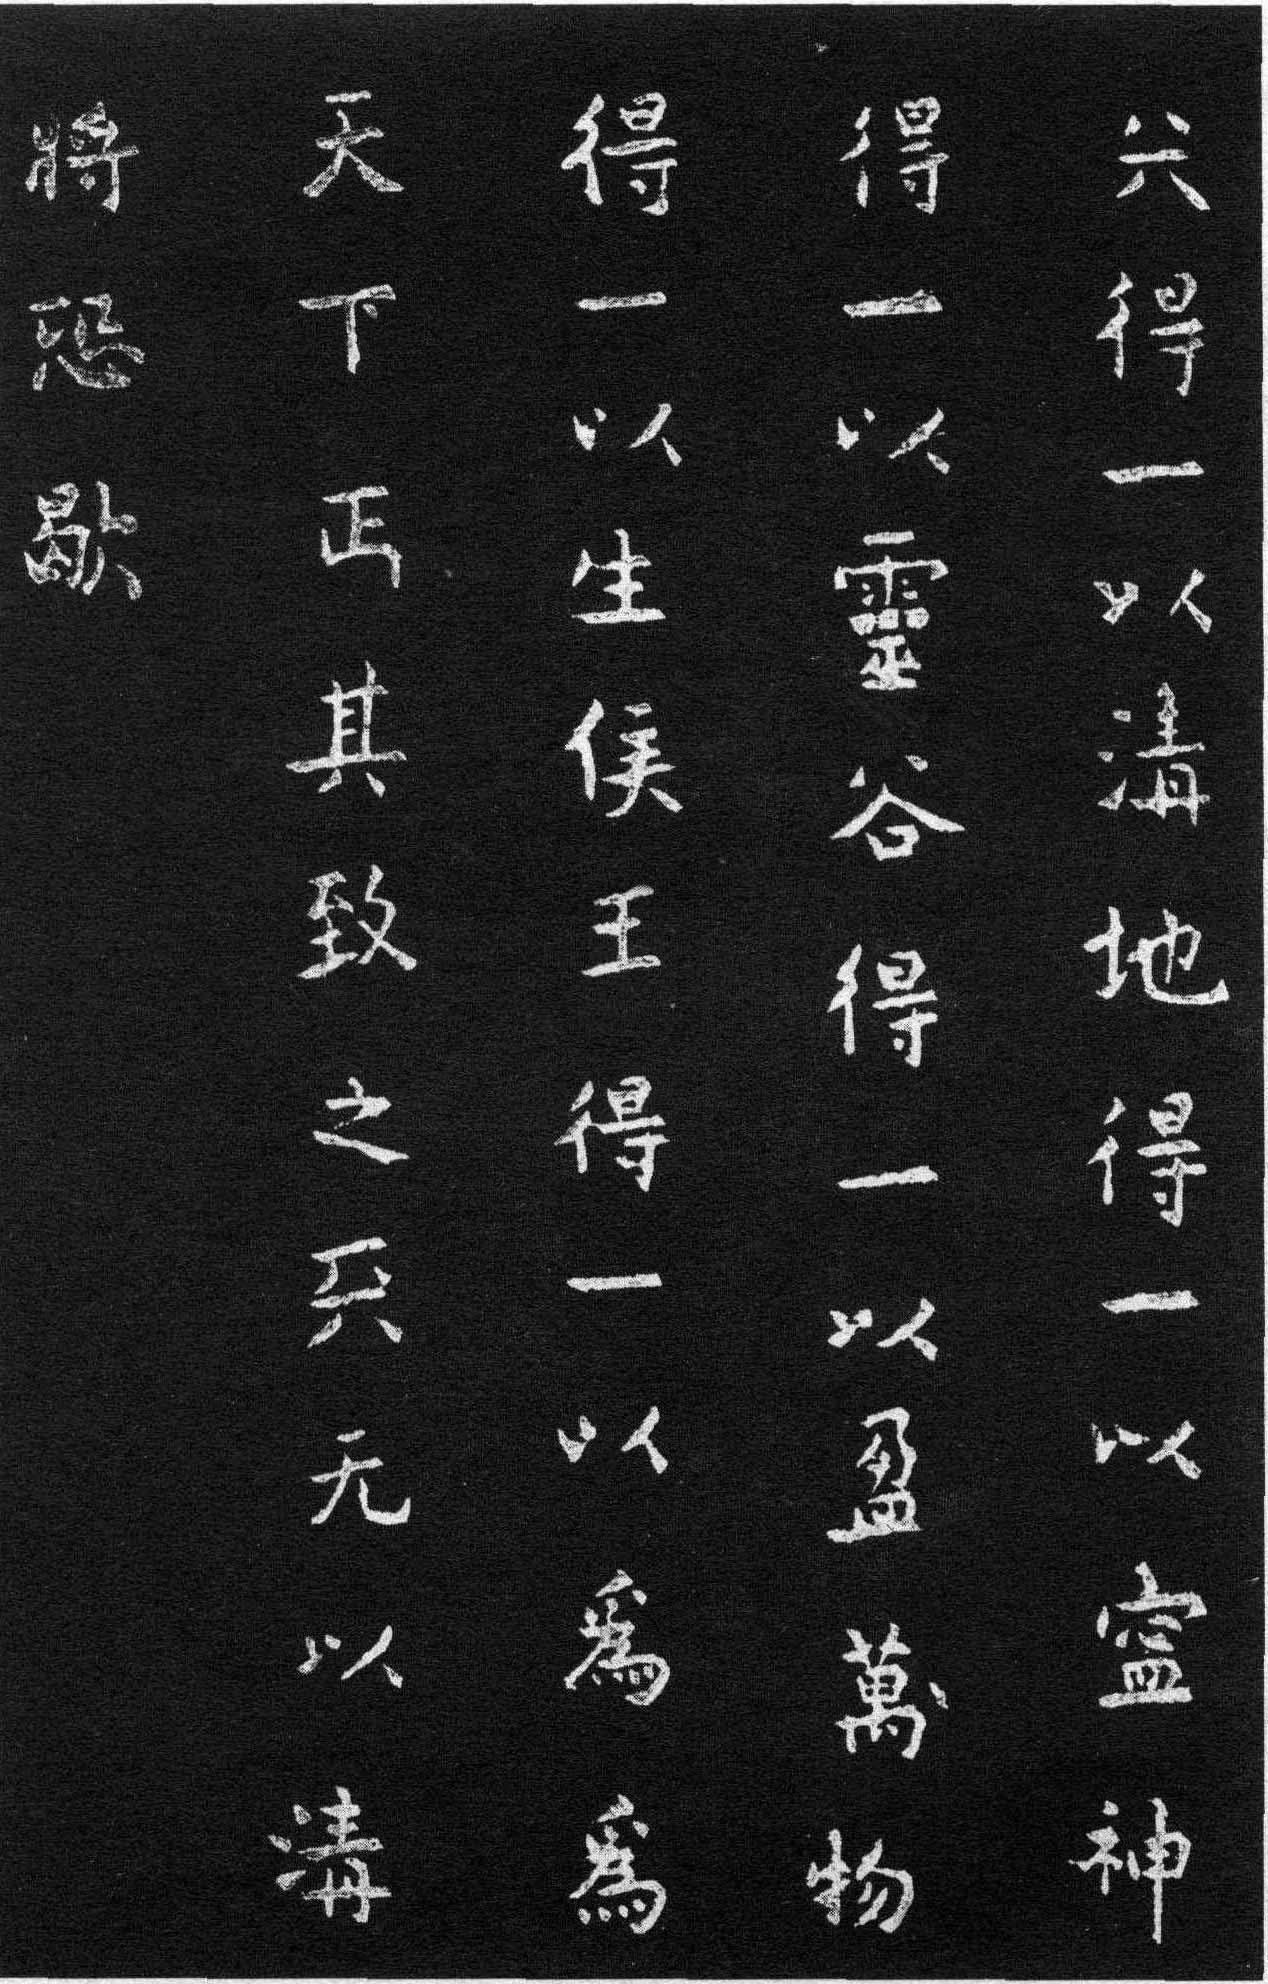 兲得一以清地得一以寍神
得一以靈谷得一以盈萬物
得一以生侯王得一以爲爲
天下正其致之兲无以清
將恐歇